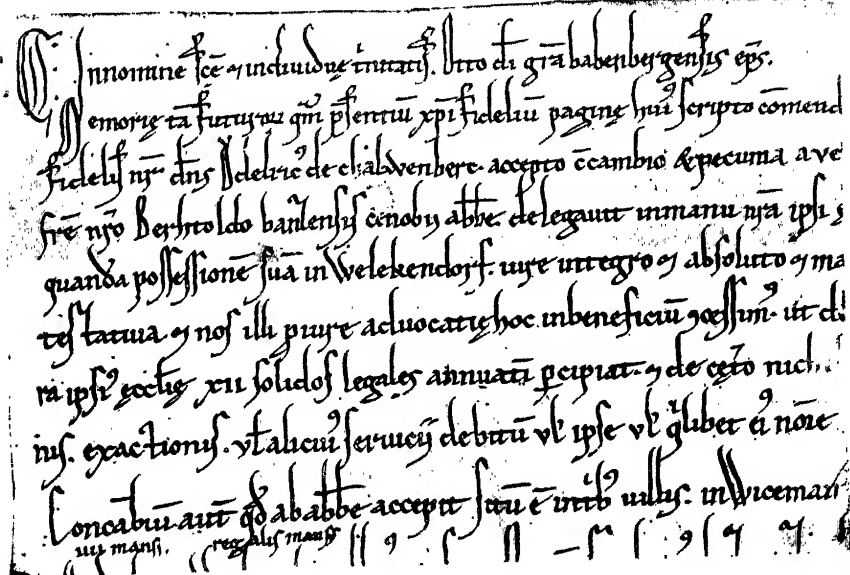 C. In nomine sc̄ę ⁊ individuę trinitatis. Otto dī gr̄a babenbergensis ep̄s.
Memorię tā futurorū qm̄ p̄sentiū xp̄i fideliū paginę hui' scripto cōmend
fidelis nr̄ dn̄s Adelric' de chalwenberc. accepto c̄cambio & pecunia a ve
fr̄e nr̄o Berhtoldo banzensis cēnobii abb̄e. delegavit in manu nr̄a ipsi
quanda possessionē suā in Welekendorf. iure integro ⁊ absoluto ⁊ ma
testativa. ⁊ nos illi p iure advocatię hoc. in beneficiū ꝯcessim'. ut
ra ipsi' ęcclię xii solidos legales annuatī p̄cipiat. ⁊ de cęt̄o nich
nis. exactionis. vl̄ alicui' servicij debitū vl̄ ipse vl̄ qͥlibet ei' noīe
Concābiū aut̄ qd̄ ab abb̄e accepit sitū ē in trib' villis. in Wiceman
iiii mansi. regalis mans'